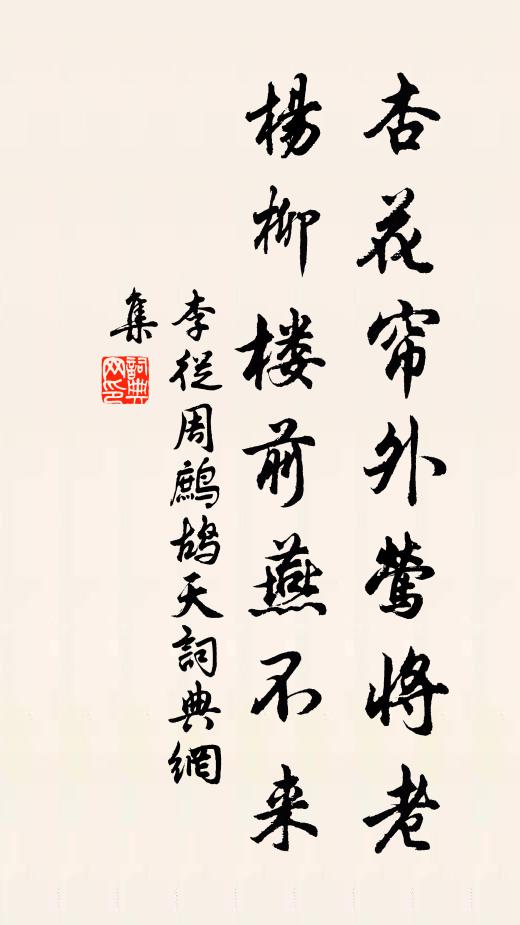 杏花帘外莺将老
杨柳楼前燕不来
李從周鷓鴣天詞典網
集
詞典
网印